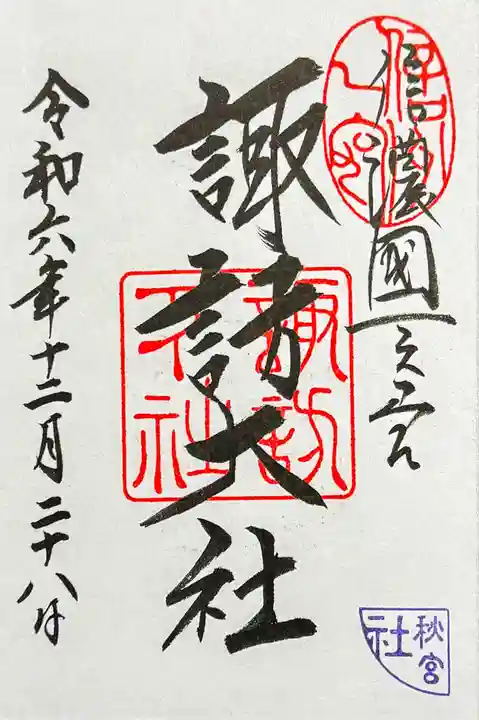 信濃國一之宮
諏訪大社
令和六年十二月二十八日
諏訪
大社
秋宮
社